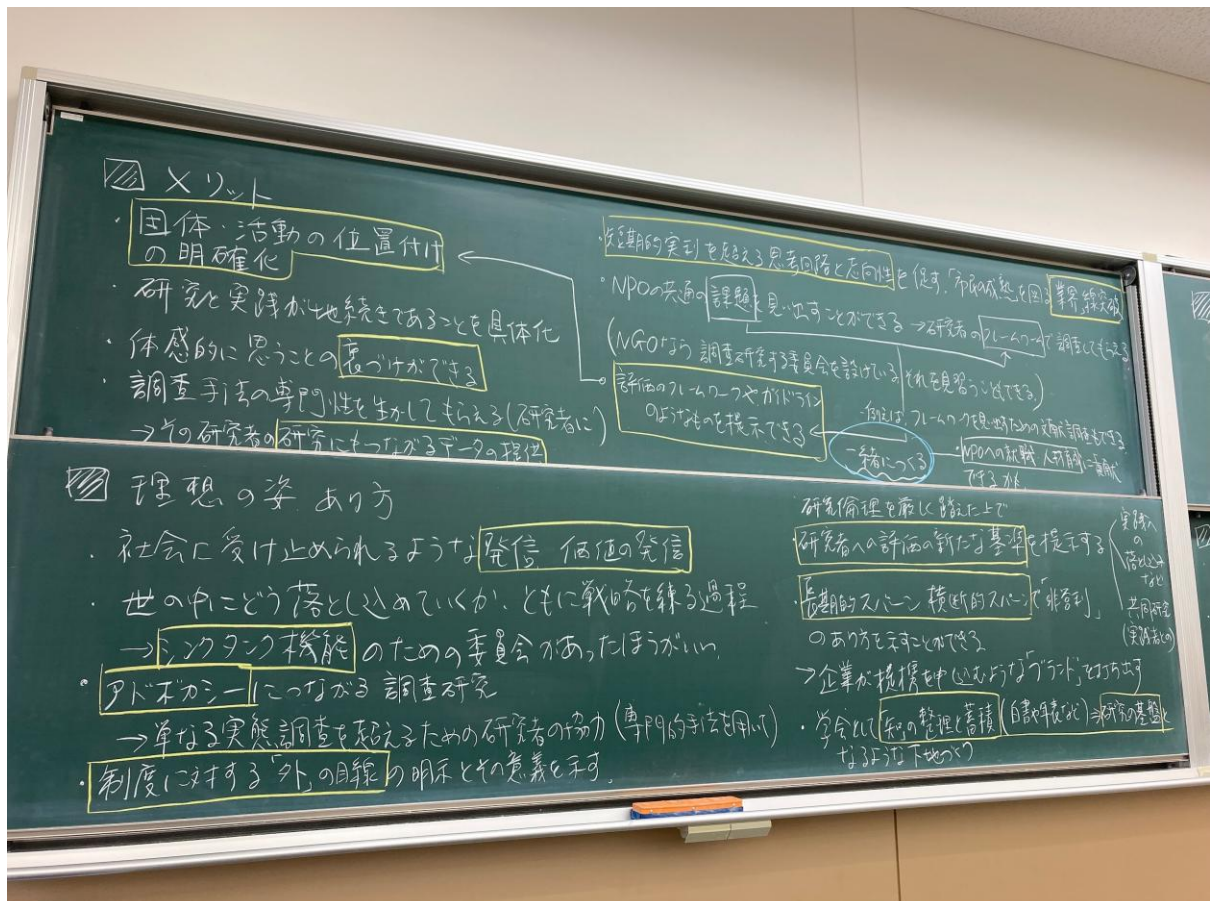 メリット
・団体・活動の位置付け
の明確化
・研究と実践が地続きであることを具体化
・体感的に思うことの裏づけができる
・調査手法の専門性を生かしてもらえる(研究者に)
→その研究者の研究にもつながるデータの提供
・短期的実利を超える思考回路と志向性を促す、「市民の成熟」を図る 業界線突破
・NPOの共通の課題を見い出すことができる → 研究者のフレームワークで調査してもらえる
(NGOなら 調査研究する委員会を設けている それを見習うこともできる)
評価のフレームワークやガイドライン
のようなものを提示できる
・例えば、フレームワークを見い出すための文献調査もできる
一緒につくる
・NPOへの就職 人材育成に
できるかも
理想の姿 あり方
・社会に受け止められるような発信 価値の発信
・世の中にどう落とし込めていくか、ともに戦略を練る過程
→シンクタンク機能のための委員会があったほうがいい
・アドボカシーにつながる調査研究
→単なる実態調査を超えるための研究者の協力(専門的手法を用いて)
・制度に対する「外」の目線の明示とその意義を示す
研究倫理を厳しく踏えた上で
・研究者への評価の新たな基準を提示する
実践への
落とし込み
など
共同研究
(実践者との)
・長期的スパーン 横断的スパーンで「非営利」
のあり方を示すことができる
→企業が提携を申し込むような「ブランド」を打ち出す
・学会として「知」の整理と蓄積(白書や年表など)⇒研究の基盤と
なるような下地づくり